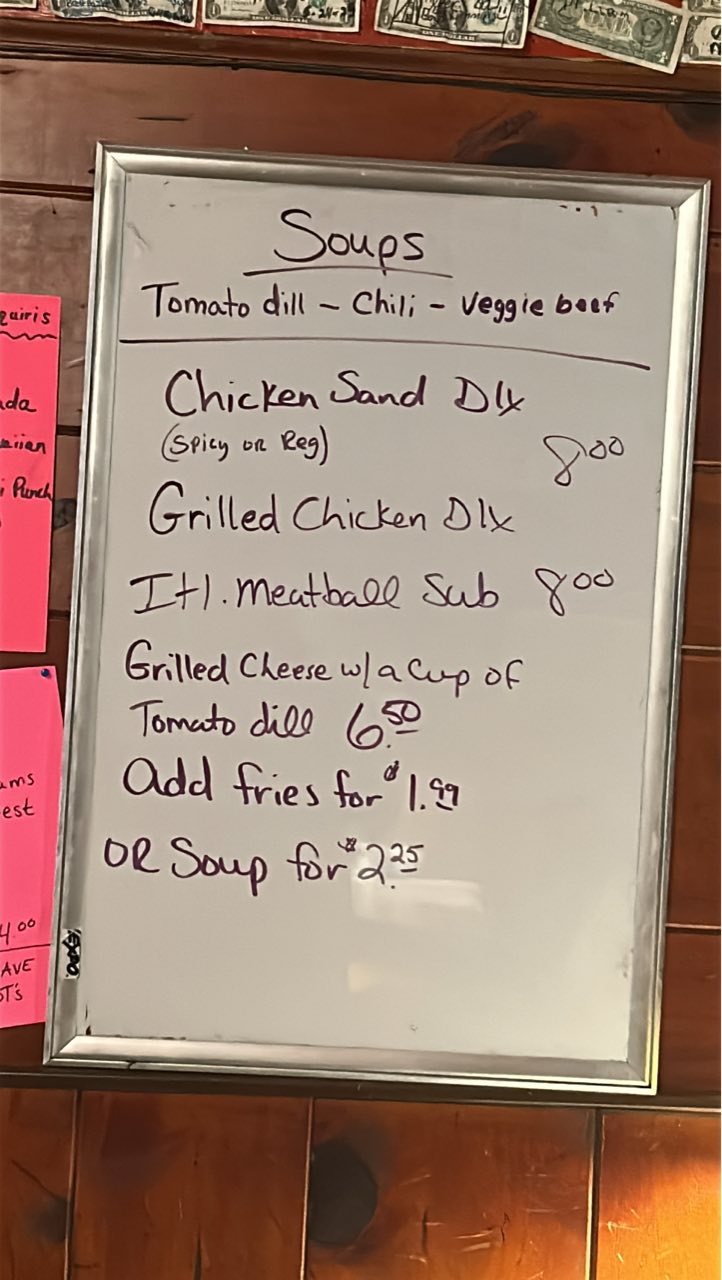 Soups
Tomato dill - Chili - Veggie beef
Chicken Sand Dlx
(Spicy or Reg)
8.00
Grilled Chicken Dlx
Itl. Meatball Sub 8.00
Grilled Cheese w/ a Cup of
Tomato dill 6.50
Add fries for $1.99
OR Soup for $2.25
EXPO
quiris
ada
aiian
i Punch
ams
est
4.00
AVE
OT's